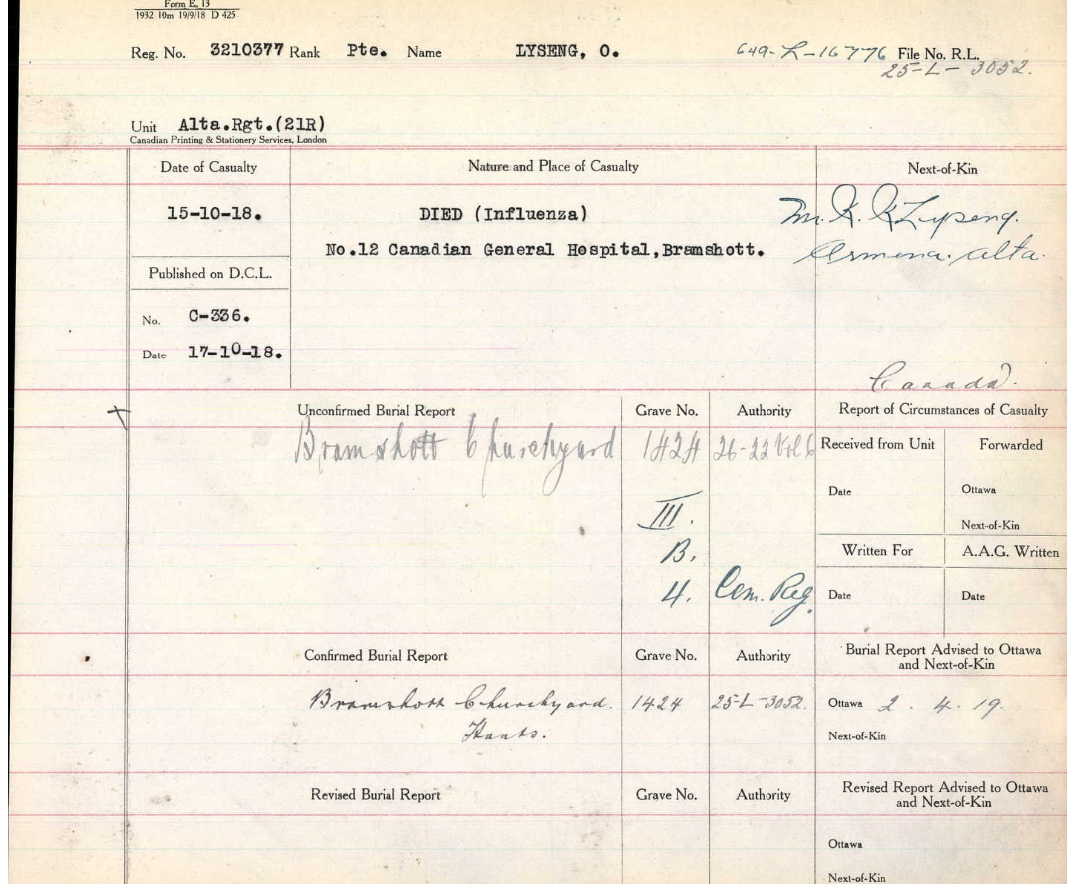 Form E. 13
1932 10m 19/9/18 D 425
Reg. No. 3210377 Rank Pte. Name LYSENG, O. 649-L-16776 File No. R.L.
25-L-3052.
Unit Alta.Rgt.(21R)
Canadian Printing & Stationery Services, London
Date of Casualty Nature and Place of Casualty Next-of-Kin
15-10-18. DIED (Influenza) Lyseng.
No.12 Canadian General Hospital,Bramshott. Armena. Alta.
Published on D.C.L.
No. C-336.
Date 17-10-18.
Canada.
Unconfirmed Burial Report Grave No. Authority Report of Circumstances of Casualty
Bramshott Churchyard 1424 26-22 Vol 6 Received from Unit Forwarded
Date Ottawa
III. Next-of-Kin
B. Written For A.A.G. Written
4. Cem. Reg. Date Date
Confirmed Burial Report Grave No. Authority Burial Report Advised to Ottawa
and Next-of-Kin
Bramshott Churchyard. 1424 25-L-3052. Ottawa 2. 4. 19.
Hants. Next-of-Kin
Revised Burial Report Grave No. Authority Revised Report Advised to Ottawa
and Next-of-Kin
Ottawa
Next-of-Kin